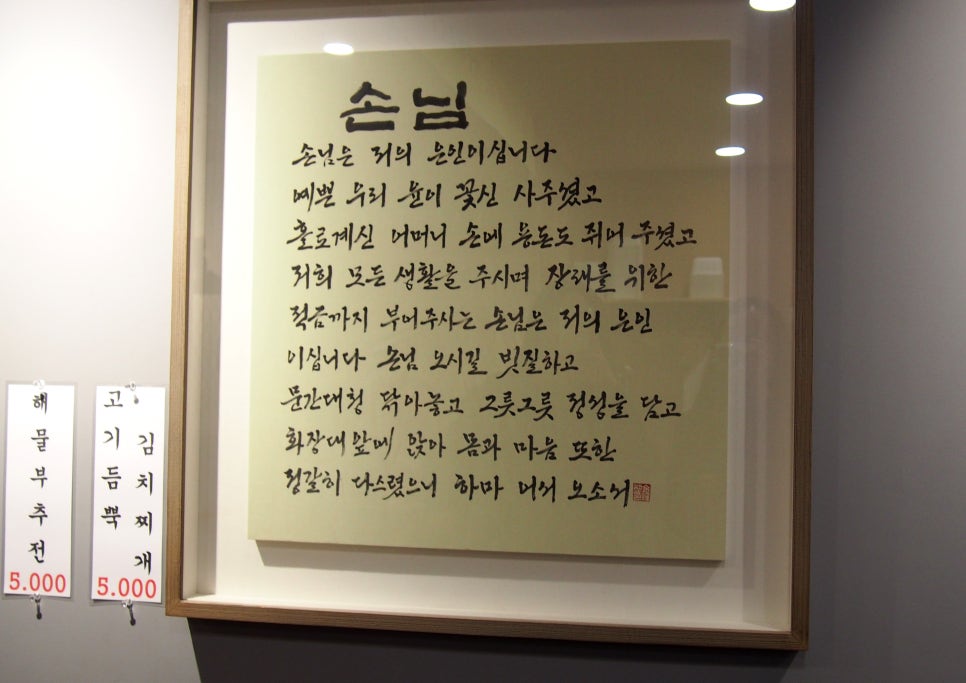 손님
손님은 저의 은인이십니다
예쁜 우리 윤이 꽃신 사주셨고
홀로계신 어머니 손에 용돈도 쥐어 주셨고
저희 모든 생활을 주시며 장래를 위한
적금까지 부어주사는 손님은 저의 은인
이십니다 손님 오시길 빗질하고
문간대청 닦아놓고 그릇그릇 정성을 담고
화장대 앞에 앉아 몸과 마음 또한
정갈히 다스렸으니 하마 어서 오소서
해물부추전
5.000
고기듬뿍
김치찌개
5.000